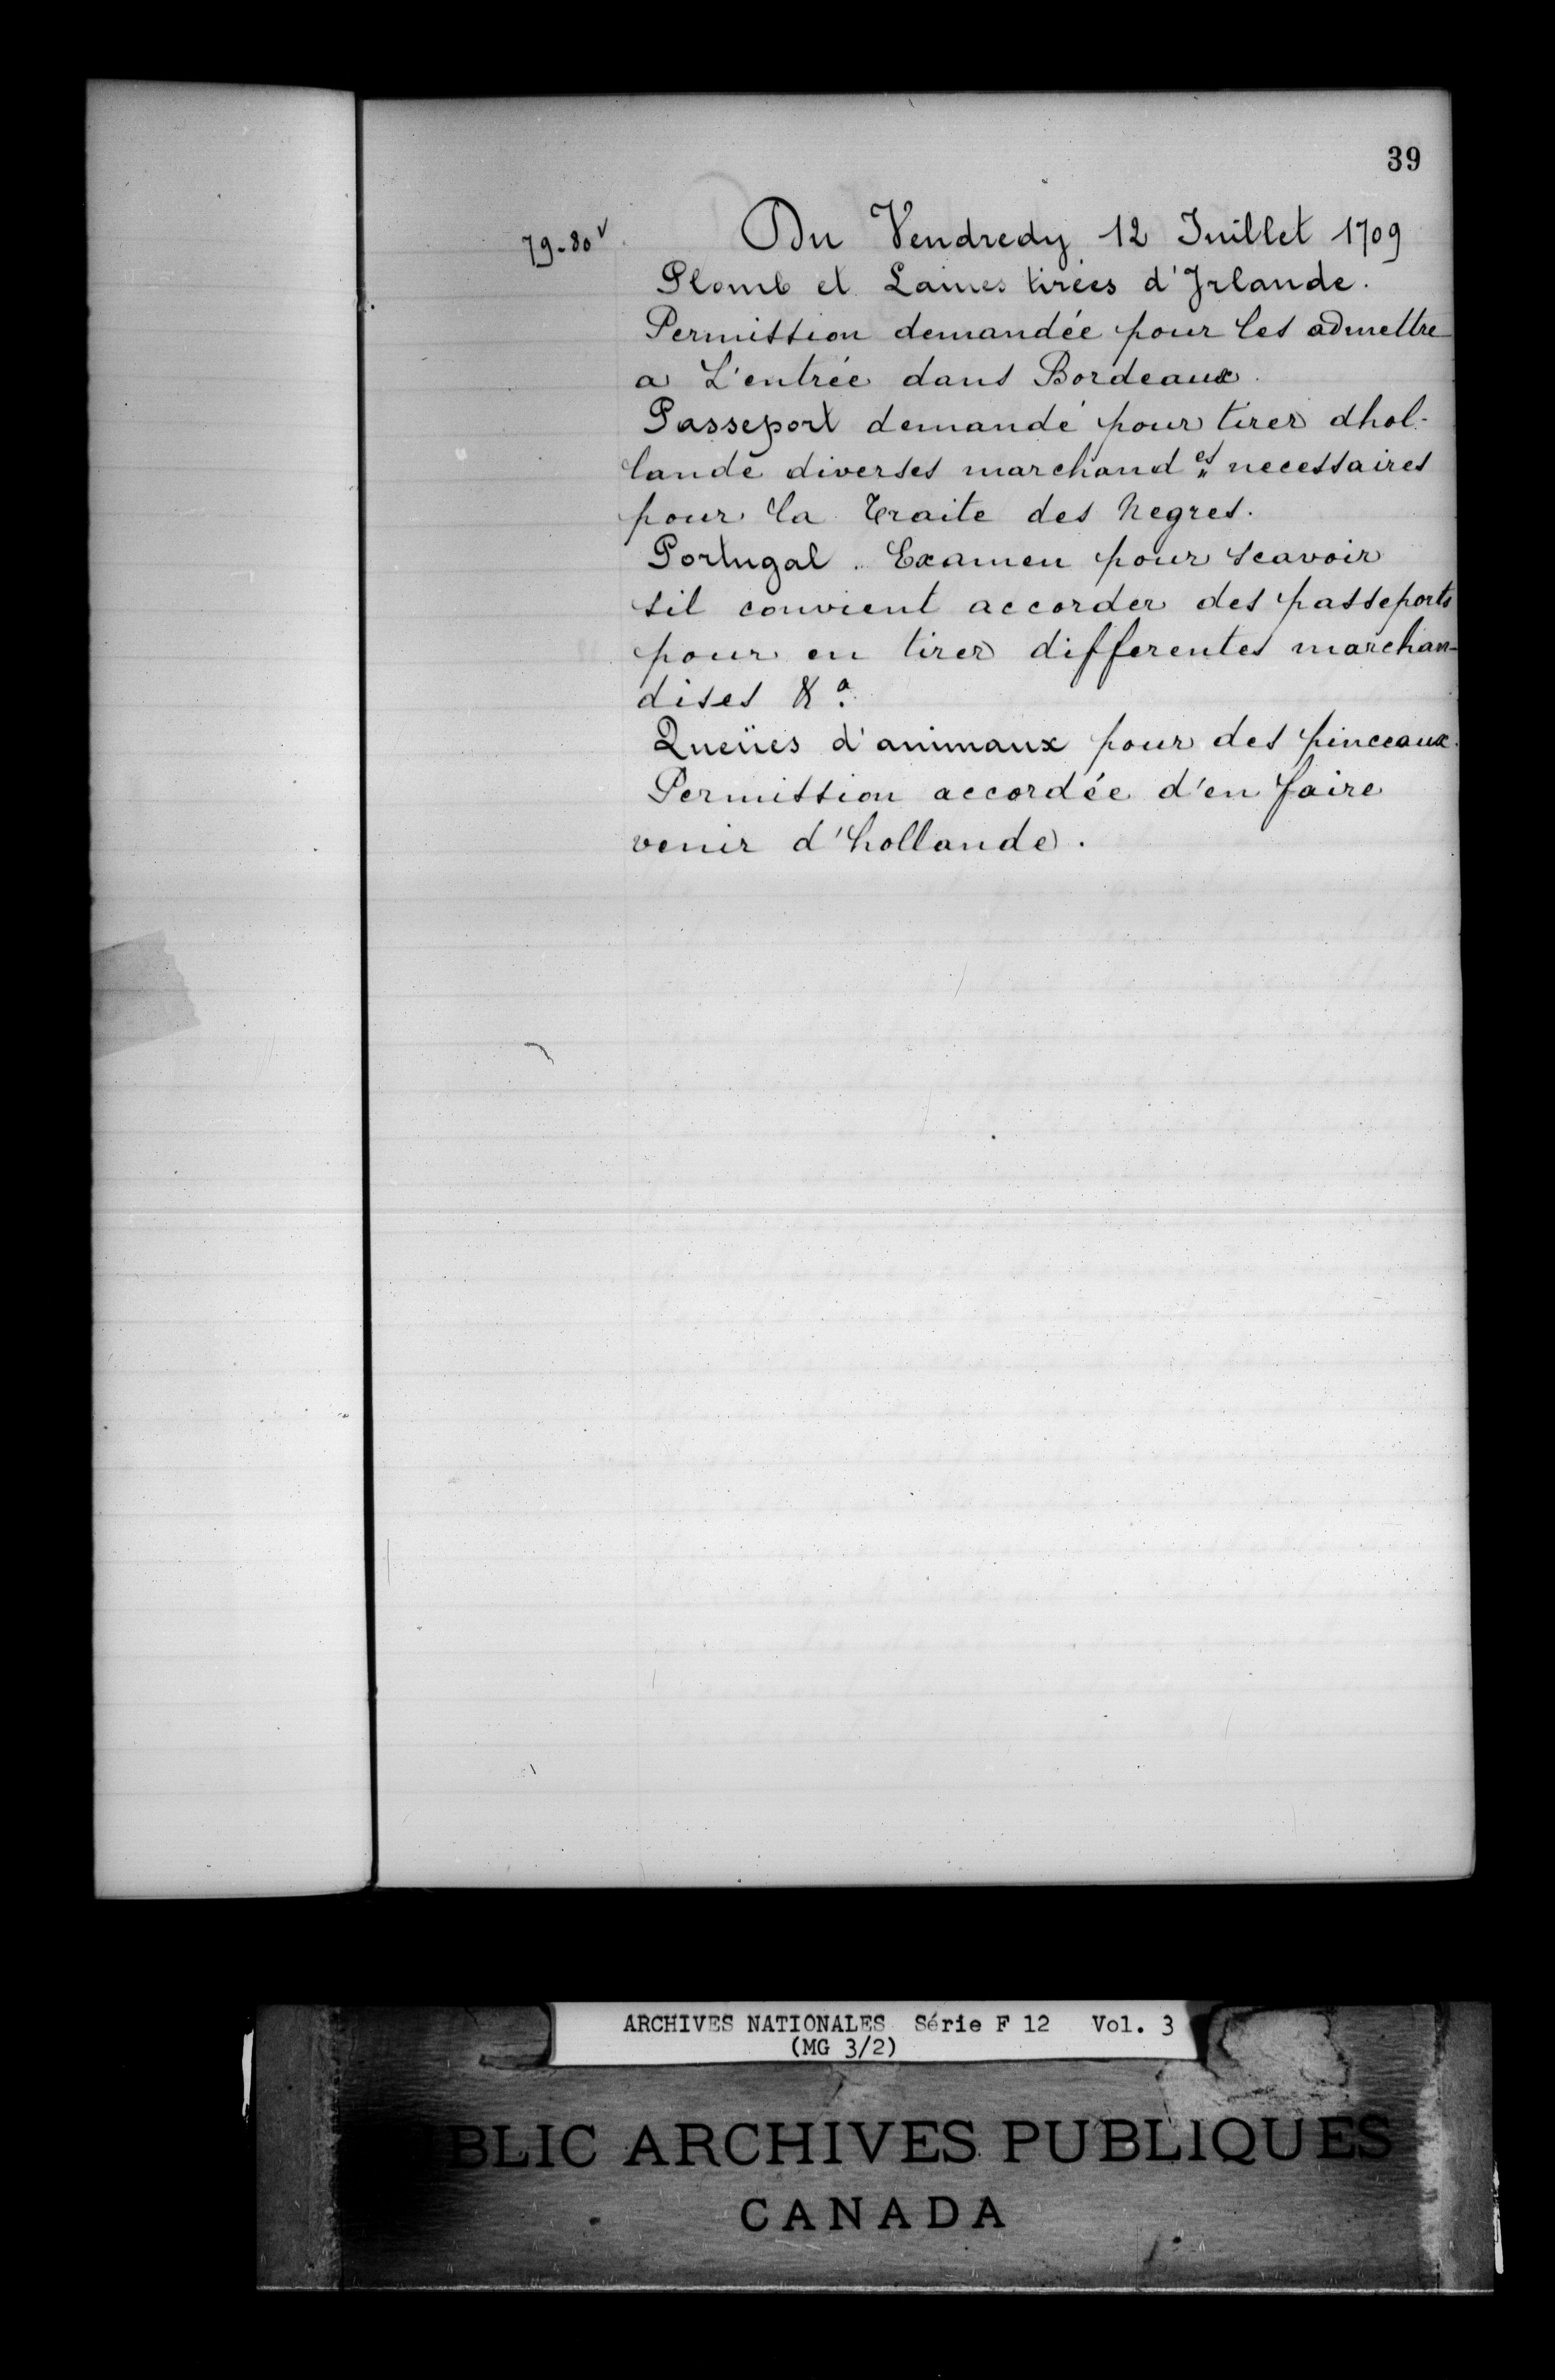 39
79-80v Du Vendredy 12 Juillet 1709
Plomb et Laines tirées d'Jrlande.
Permission demandée pour les admettre
a L'entrée dans Bordeaux.
Passeport demandé pour tirer dhol-
lande diverses marchandes necessaires
pour la Traite des Negres.
Portugal. Examen pour scavoir
sil convient accorder des passeports
pour en tirer differentes marchan-
dises &a.
Queües d'animaux pour des pinceaux.
Permission accordée d'en faire
venir d'hollande.
ARCHIVES NATIONALES Série F 12 Vol. 3
(MG 3/2)
BLIC ARCHIVES PUBLIQUES
CANADA